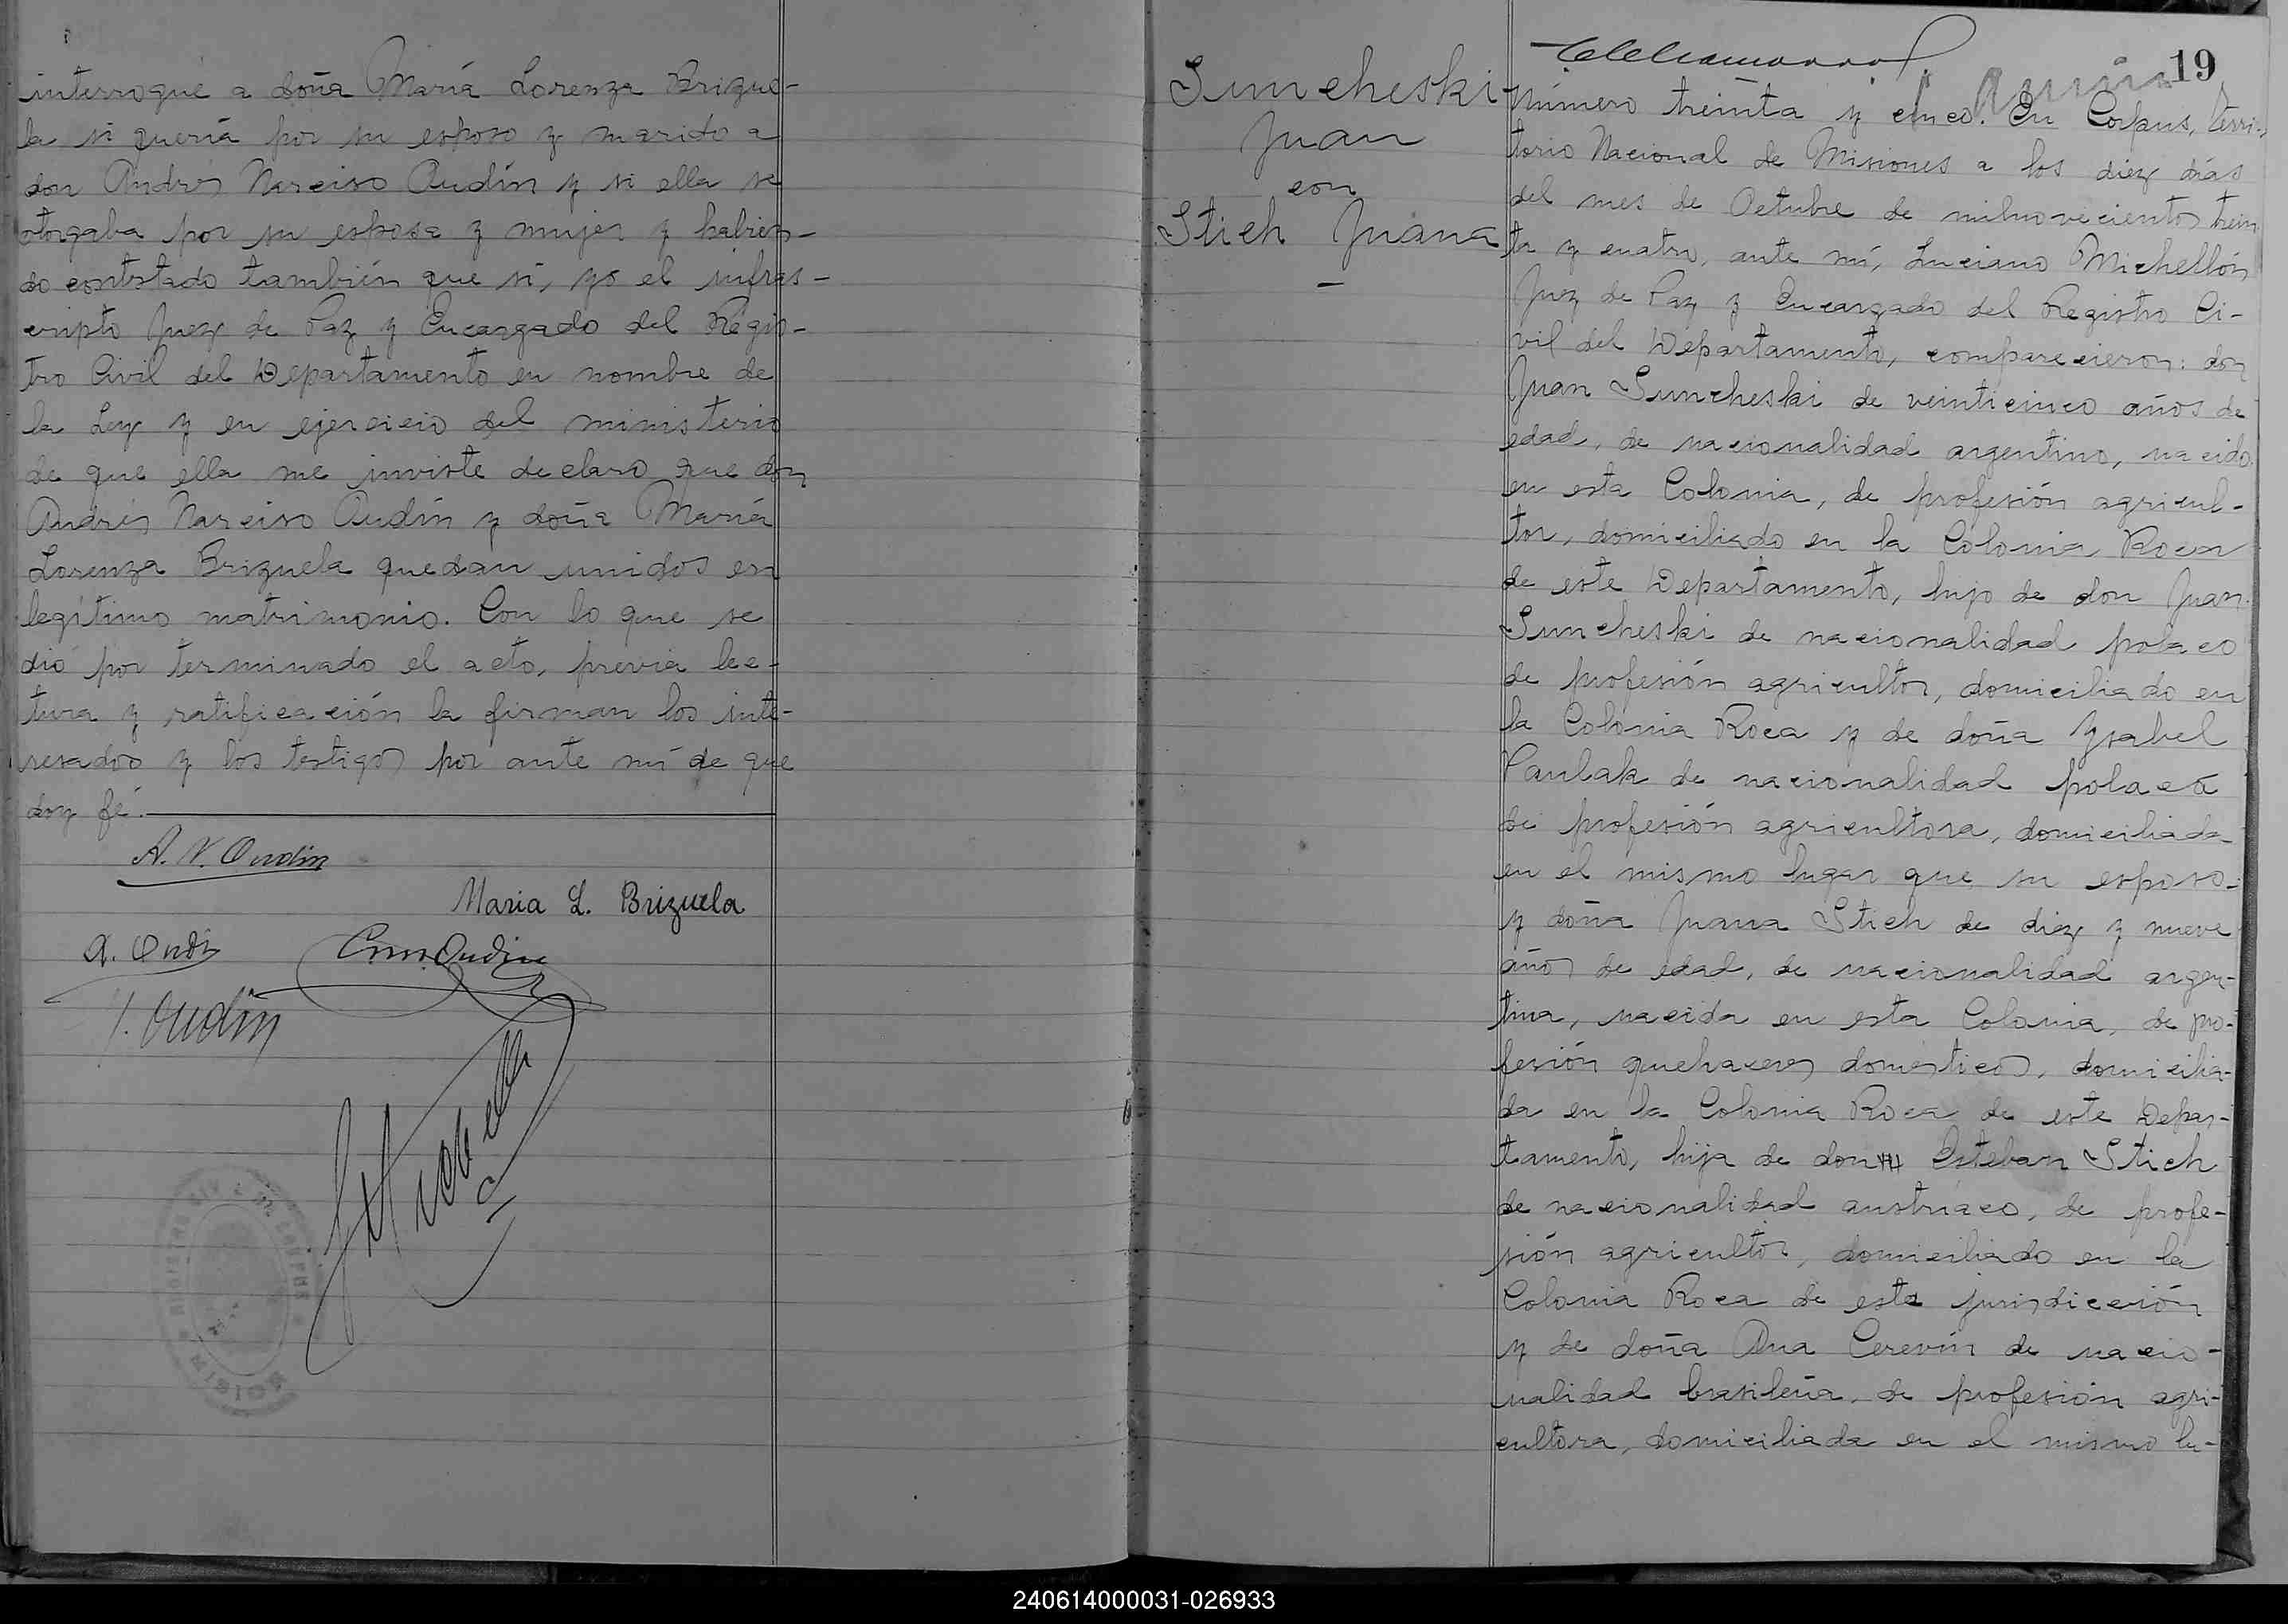 interrogué a doña María Lorenza Brizue-
la si quería por su esposo y marido a
don Andrés Narciso Oudín y si ella se
otorgaba por su esposa y mujer y habien-
do contestado también que si, yo el infras-
cripto Juez de Paz y Encargado del Regis-
tro Civil del Departamento en nombre de
la Ley y en ejercicio del ministerio
de que ella me inviste declaro que don
Andrés Narciso Oudín y doña María
Lorenza Brizuela quedan unidos en
legítimo matrimonio. Con lo que se
dió por terminado el acto, previa lec-
tura y ratificación la firman los inte-
resados y los testigos por ante mí de que
doy fé.
A. N. Oudin
Maria L. Brizuela
A. Oudi
Oudin
Y. Oudin
19
Suncheski
Juan
con
Stich Juana
Número treinta y cinco. En Corpus, Terri-
torio Nacional de Misiones a los diez días
del mes de Octubre de milnovecientos trein
ta y cuatro, ante mí, Luciano Michellón
Juez de Paz y Encargado del Registro Ci-
vil del Departamento, comparecieron: don
Juan Suncheski de veinticinco años de
edad, de nacionalidad argentino, nacido
en esta Colonia, de profesión agricul-
tor, domiciliado en la Colonia Roca
de este Departamento, hijo de don Juan
Suncheski de nacionalidad polaco
de profesión agricultor, domiciliado en
la Colonia Roca y de doña Ysabel
Paulak de nacionalidad polaca
de profesión agricultora, domiciliada
en el mismo lugar que su esposo-
y doña Juana Stich de diez y nueve
años de edad, de nacionalidad argen-
tina, nacida en esta Colonia, de pro-
fesión quehaceres domésticos, domicilia-
da en la Colonia Roca de este Depar-
tamento, hija de don Esteban Stich
de nacionalidad austríaco, de profe-
sión agricultor, domiciliado en la
Colonia Roca de esta jurisdicción
y de doña Ana Cerevín de nacio-
nalidad brasileña, de profesión agri-
cultora, domiciliada en el mismo lu-
240614000031-026933